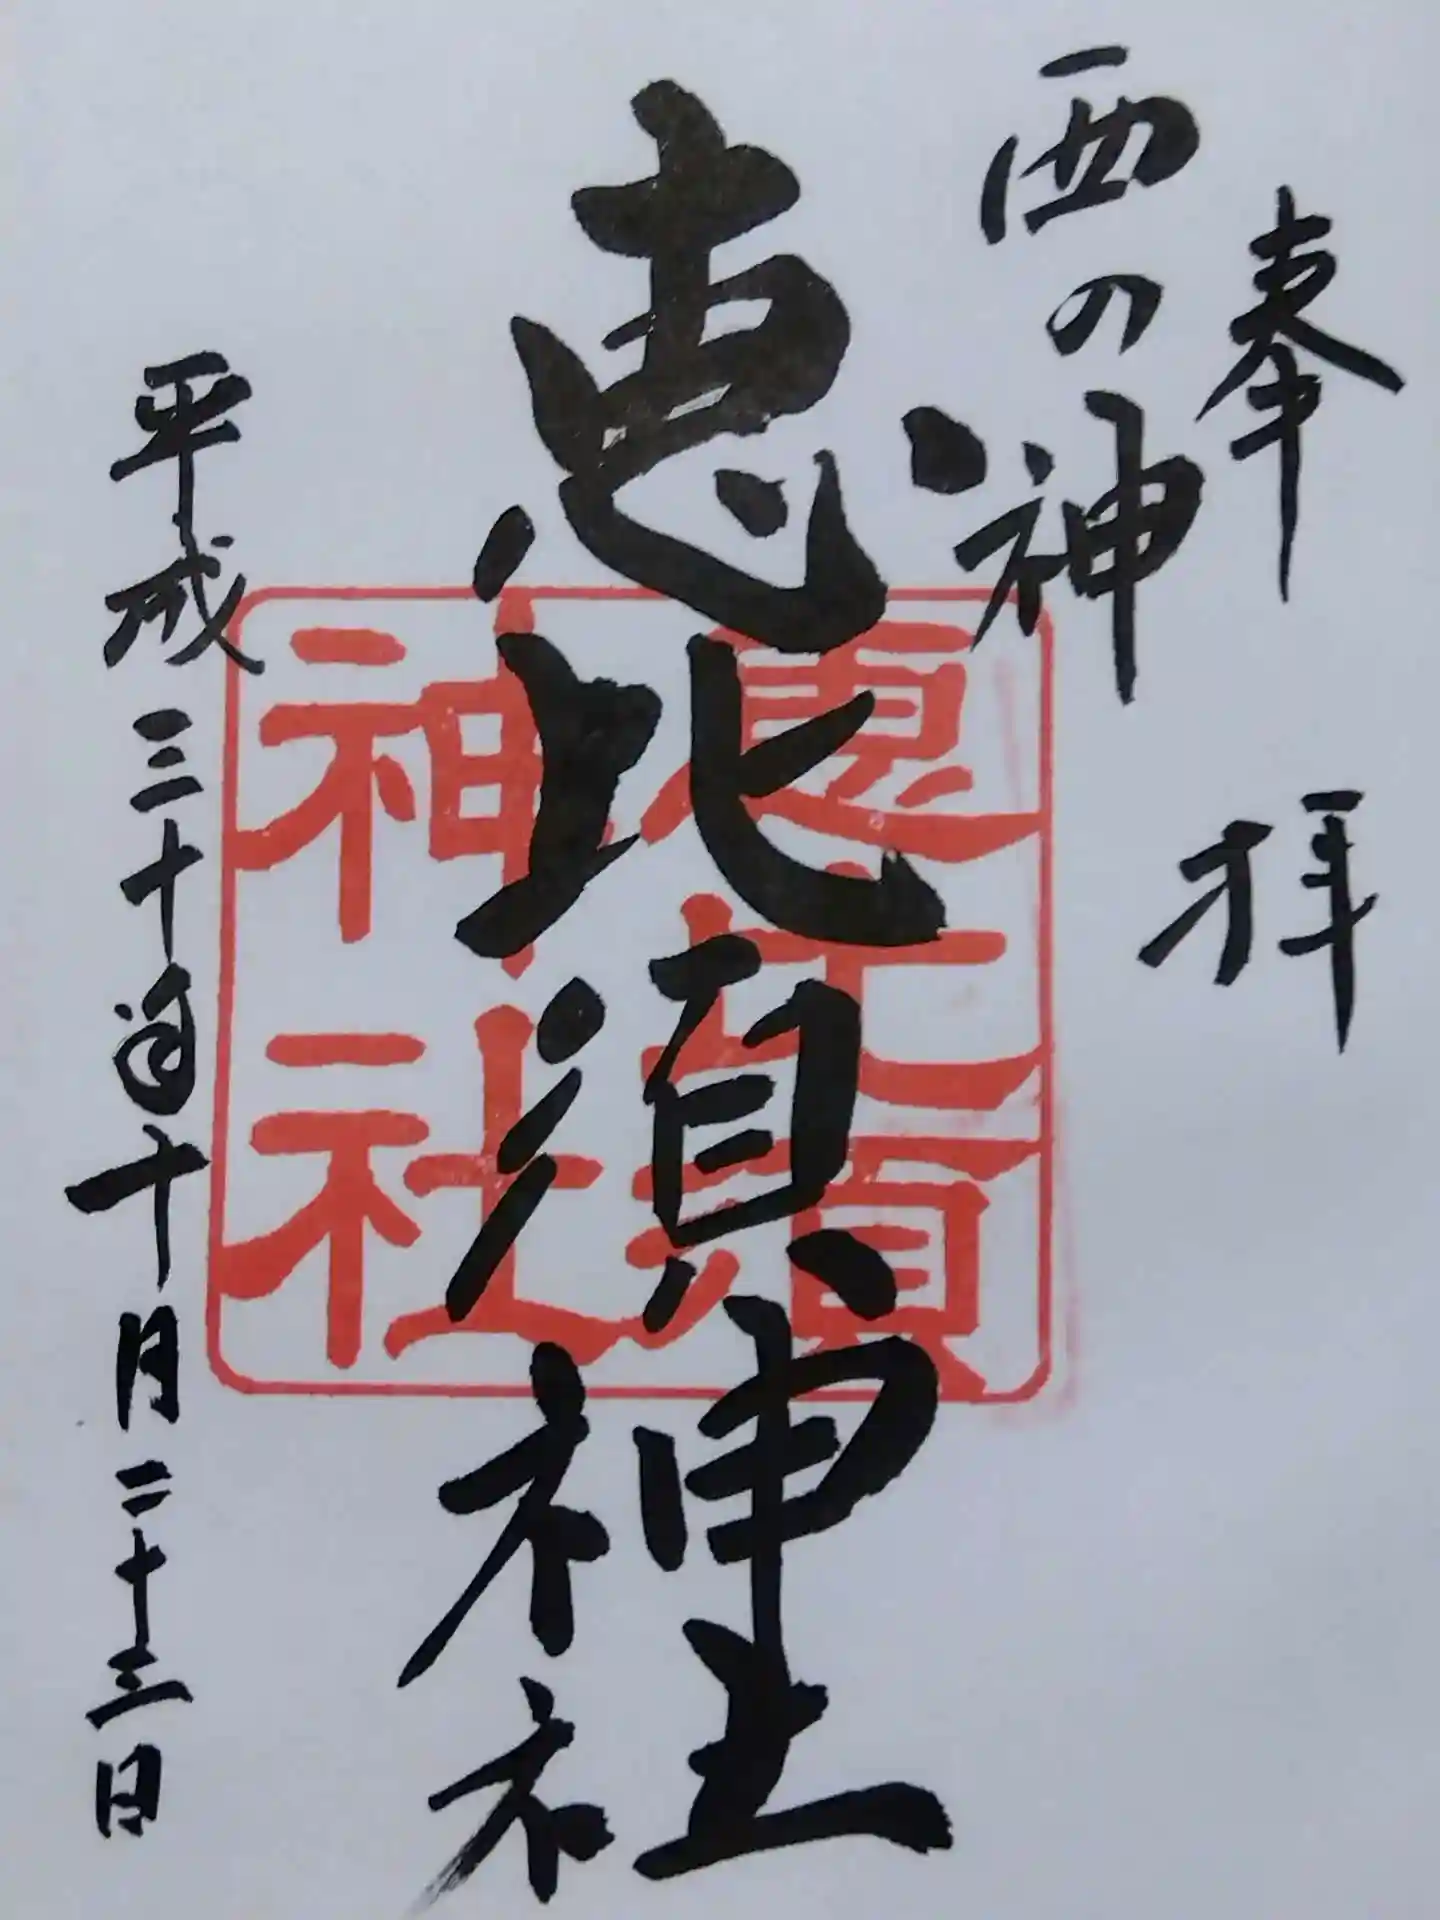 奉拝
西の神
恵比須神社
恵比須
神社
平成三十年十月二十三日